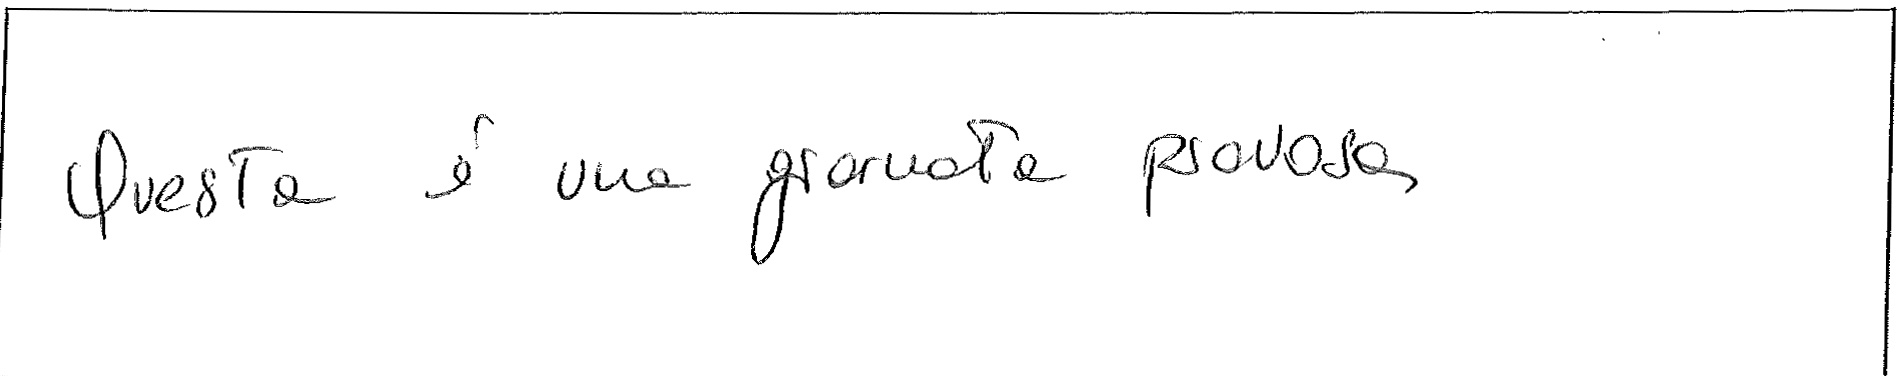 Questa é una giornata piovosa